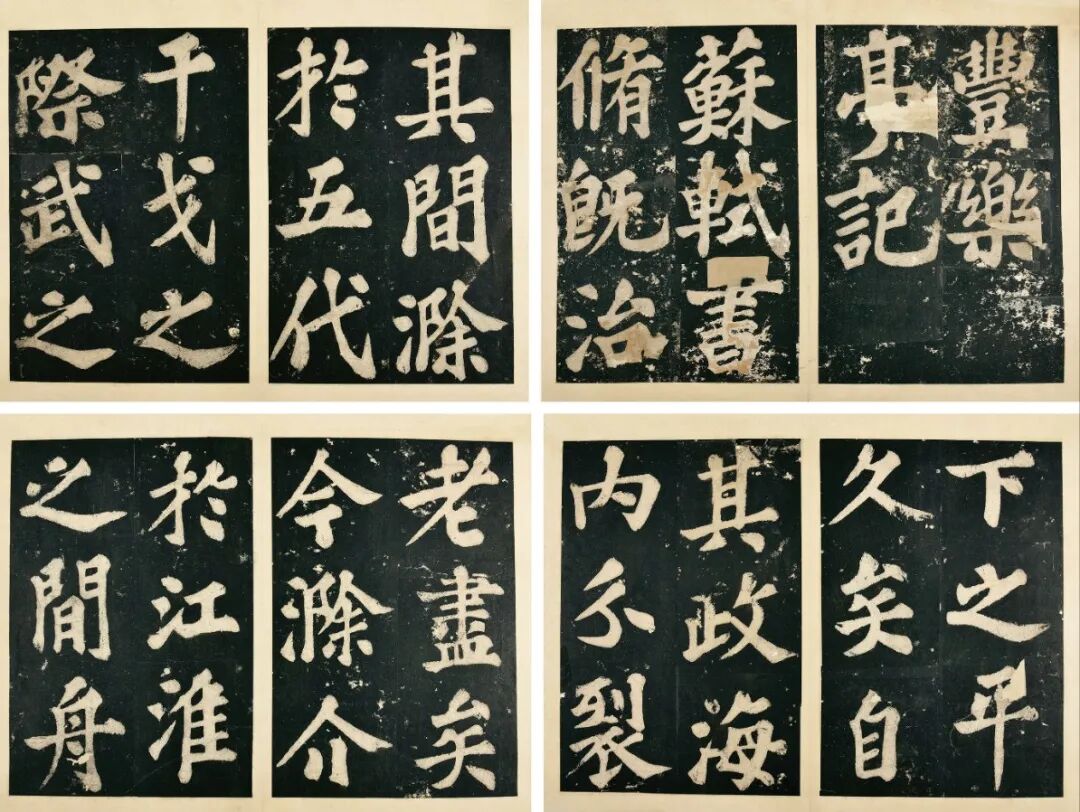 豐樂
亭記
蘇軾書
脩既治
其間滁
於五代
干戈之
際武之
下之平
久矣自
其政海
内分裂
老盡矣
今滁介
於江淮
之間舟